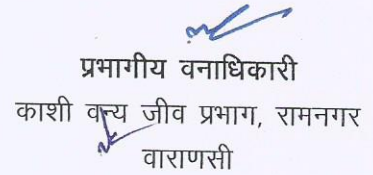 प्रभागीय वनाधिकारी
काशी वन्य जीव प्रभाग, रामनगर
वाराणसी